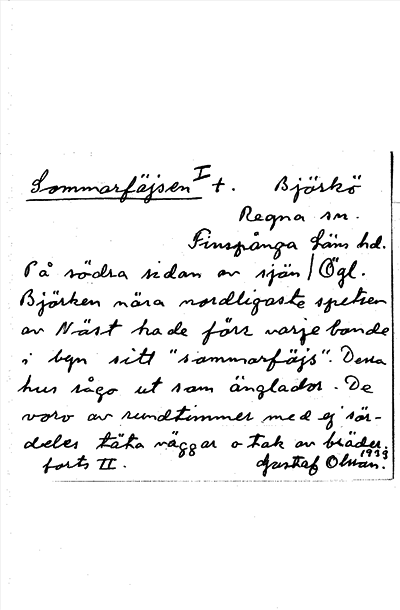 Sommarfäjsen I t. Björkö
Regna sn.
Finspånga läns hd.
På södra sidan av sjön / Ögl.
Björken nära nordligaste spetsen
av Näst hade förr varje bonde
i byn sitt "sommarfäjs". Dessa
hus sågo ut som änglador. De
voro av rundtimmer med ej sör-
deles täta väggar o tak av bräder.
forts II. Gustaf Olsson. 1933